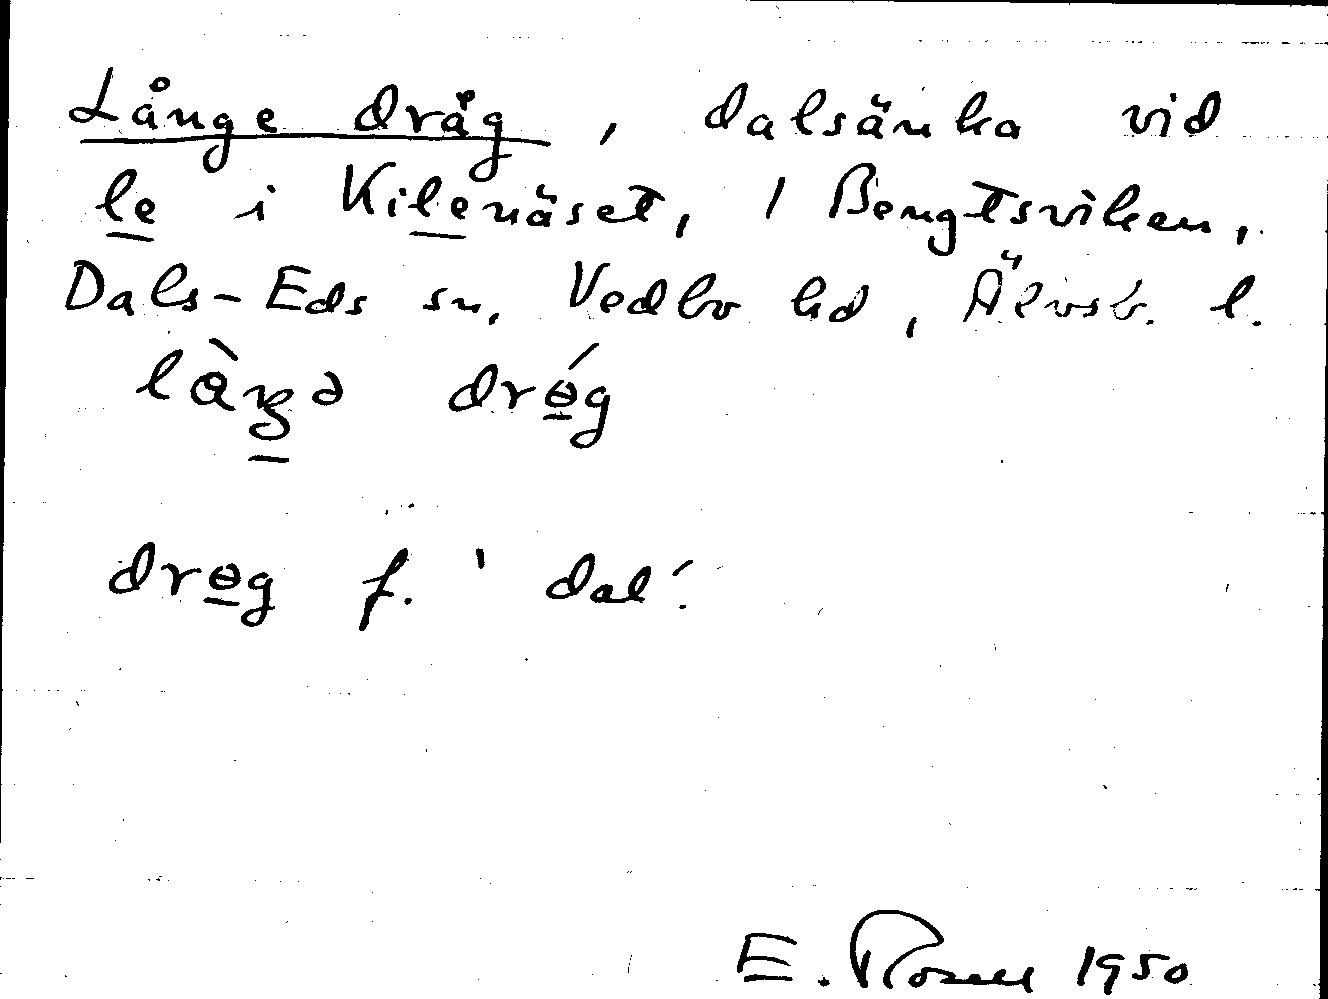 Långe dråg, dalsänka vid
le i Kilenäset, 1 Bengtsviken,
Dals-Eds sn, Vedbo hd, Älvsb. l.
làŋə drɵ́g
drɵg f. 'dal'.
E. Rosell 1950